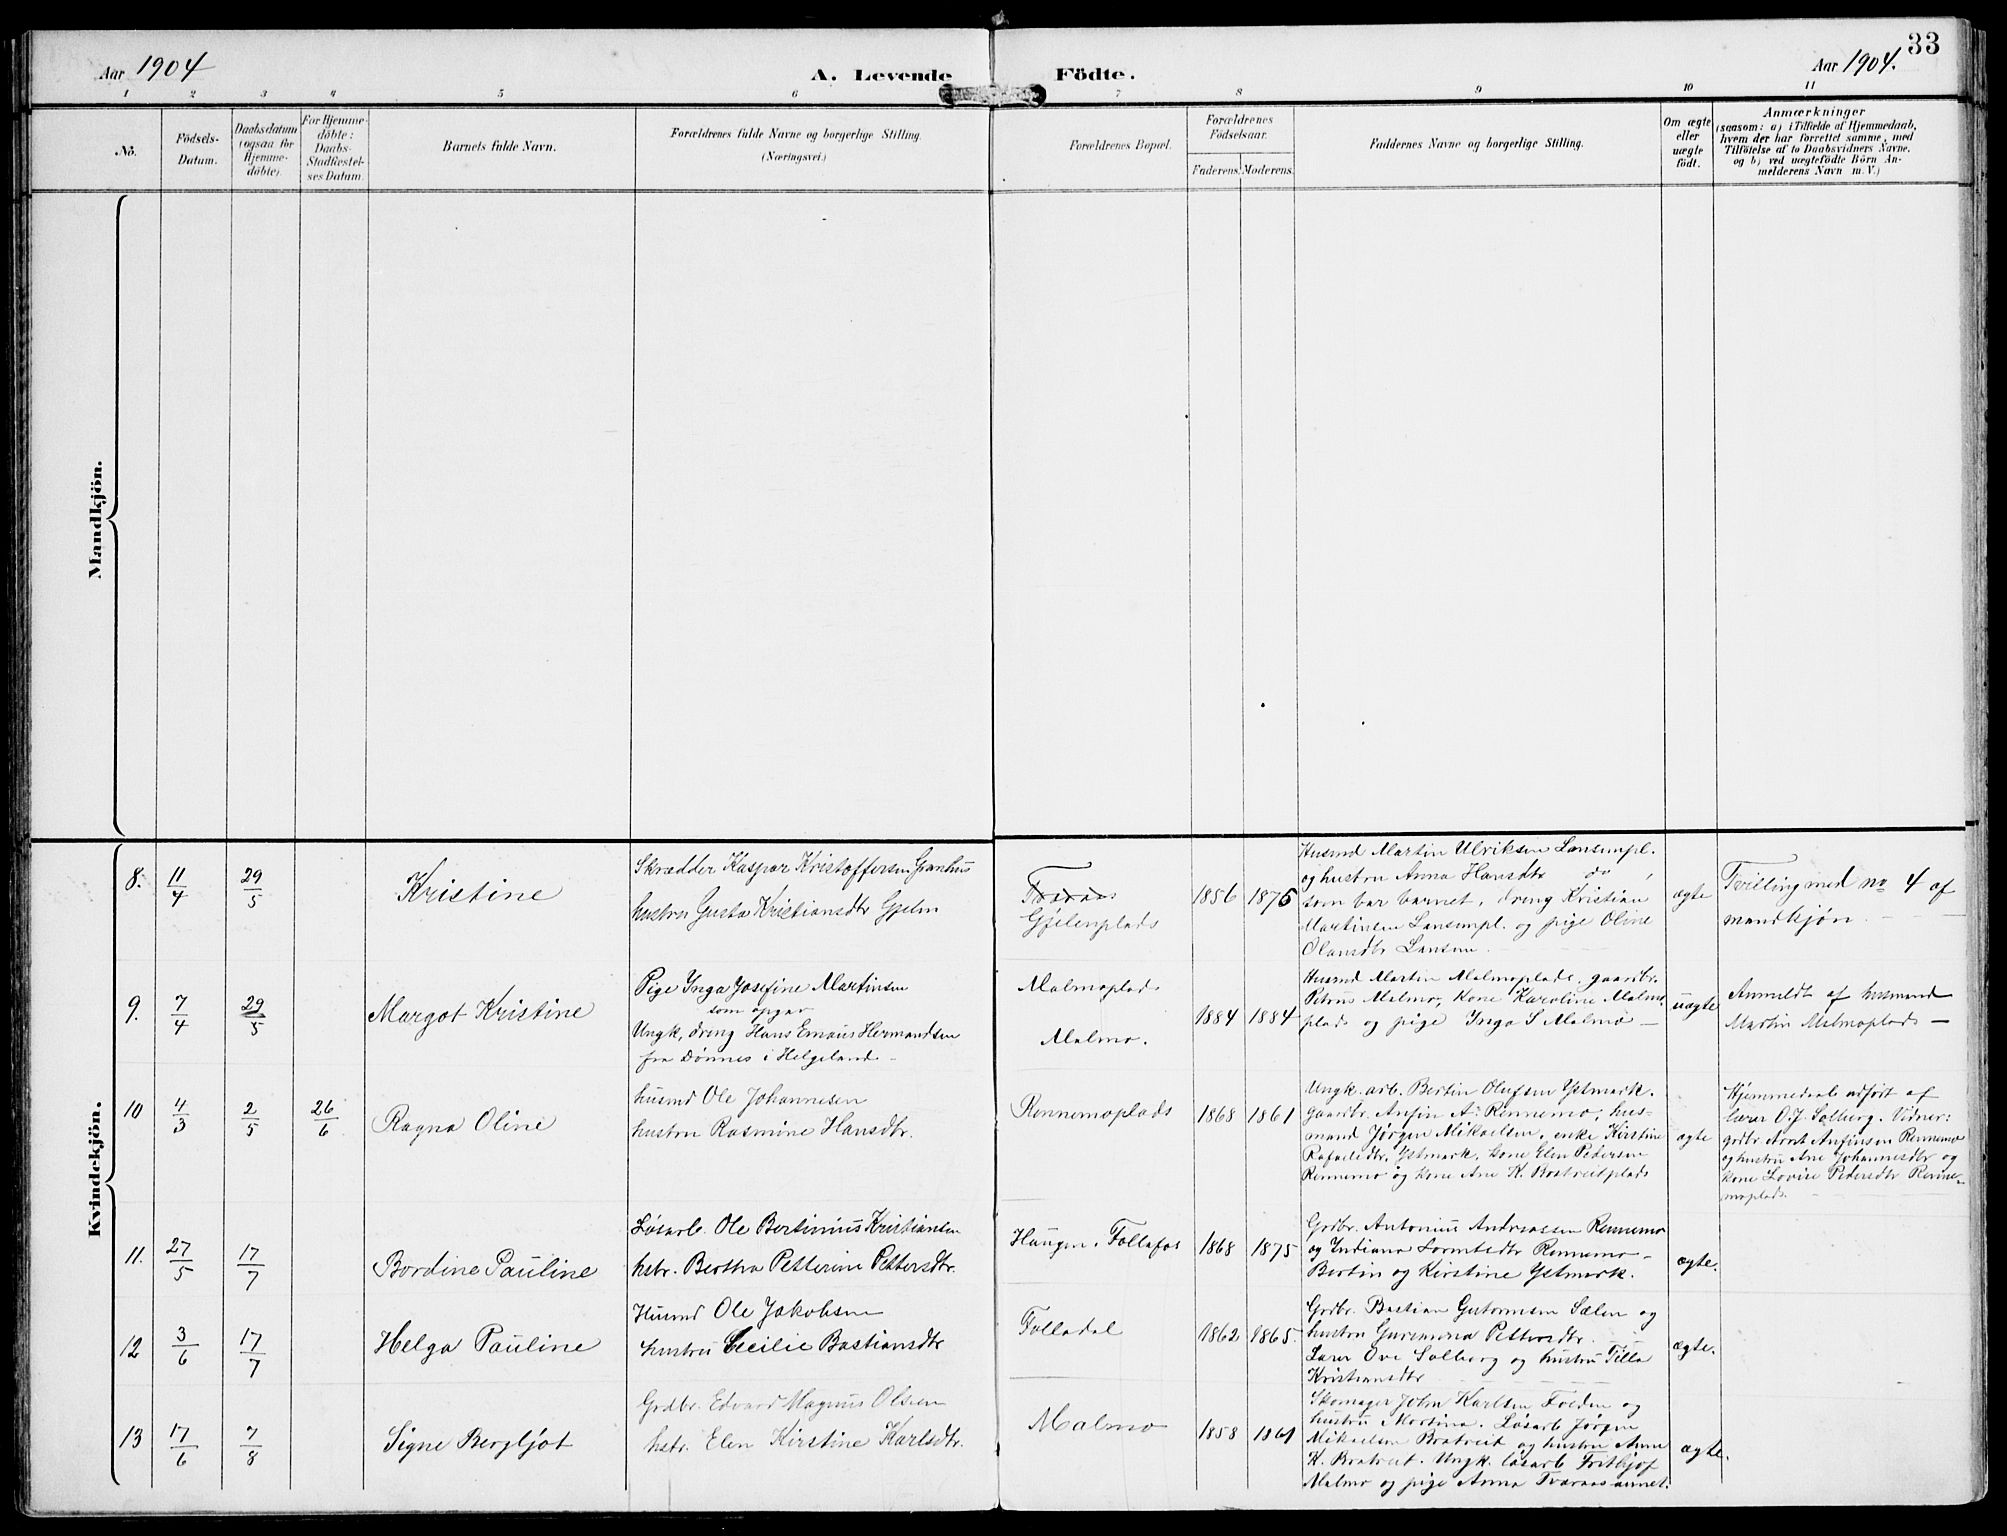 Aar 1904
A. Levende Födte.
Aar 1904.
33
1 2 3 4 5 6 7 8 9 10 11
No.
Födsels-
Datum.
Daabsdatum
(ogsaa for
Hjemme-
döbte).
For Hjemme-
döbte:
Daabs-
Stadfæstel-
ses Datum.
Barnets fulde Navn.
Forældrenes fulde Navne og borgerlige Stilling.
(Næringsvei.)
Forældrenes Bopæl.
Forældrenes
Födselsaar.
Faderens.
Moderens.
Faddernes Navne og borgerlige Stilling.
Om ægte
eller
uægte
födt.
Anmærkninger
(saasom: a) i Tilfælde af Hjemmedaab,
hvem der har forrettet samme, med
Tilföielse af to Daabsvidners Navne,
og b) ved uægtefödte Börn An-
melderens Navn m. V.)
Mandkjön.
Kvindekjön.
8.
11/4
29/5
Kristine
Skrædder Kaspar Kristoffersen Granhus
hustru Gusta Kristiansdtr Gjelm
Tvaraas
Gjelenplads
1856
1876
Husmd Martin Ulriksen Lansempl.
og hustru Anna Hansdtr do,
som bar barnet, dreng Kristian
Martinsen Lansempl. og pige Oline
Olausdtr Lansem
ægte
Tvilling med no 4 af
mandkjøn.
9.
7/4
29/5
Margot Kristine
Pige Inga Josefine Martinsen
som opgav
Ungk, dreng Hans Emaus Hermandsen
fra Dønnes i Helgeland
Malmoplads
Malmo.
1884
1884
Husmd Martin Malmoplads, gaardbr.
Petrus Malmo, kone Karoline Malmo
plads og pige Inga S Malmo
uægte
Anmeldt af husmand
Martin Malmoplads
10
4/3
2/5
26/6
Ragna Oline
husmd Ole Johannesen
hustru Rasmine Hansdtr.
Rennemoplads
1868
1861
Ungk. arb. Bertin Olufsen Ystmark.
Gaardbr. Anfin A. Rennemo, hus-
mand Jørgen Mikaelsen, enke Kirstine
Rafaelsdtr. Ystmark, kone Elen Pedersen
Rennemo og kone Ane K. Bratreitplads
ægte
Hjemmedaab udført af
lærer O.J. Solberg. Vidner:
grdbr Arnt Anfinsen Rennemo
og hustru Ane Johannesdtr og
kone Lovise Pedersdtr Renne-
moplads.
11.
27/5
17/7
Bordine Pauline
Løsarb. Ole Bertinius Kristiansen
hstr. Bertha Petterine Pettersdtr.
Haugen, Follafos
1868
1875
Grdbr. Antonius Andreassen Rennemo
og Indiana Rennemo
Bertin og Kirstine Ystmark.
ægte.
12
3/6
17/7
Helga Pauline
Husmd Ole Jakobsen
hustru Cecilie Bastiansdtr
Folladal
1862
1865.
Grdbr. Bastian Gutormsen Sælen og
hustru Pettersdtr.
Lærer Ove Solberg og hustru Tilla
Kristiansdtr
ægte.
13
17/6
7/8
Signe Bergljot
Grdbr. Edvard Magnus Olsen
hstr. Elen Kirstine Karlsdtr.
Malmo
1858
1861
Skomager John Karlsen Folden og
hustru Martina. Løsarb Jørgen
Mikaelsen Bratreit og hustru Anne
K. Bratreit. Ungk. løsarb Frithjof
Malmo og pige Anna Tvaraasaunet.
ægte.